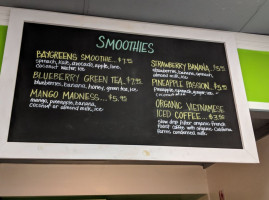 SMOOTHIES
BAYGREENS SMOOTHIE...$7.95
spinach, kale, avocado, apple, lime,
coconut water, ice
BLUEBERRY GREEN TEA..$7.95
blueberries, banana, honey, green tea, ice
MANGO MADNESS...$5.95
mango, pineapple, banana,
coconut or almond milk, ice
STRAWBERRY BANANA..$5.95
strawberries, banana, spinach,
almond milk, ice
PINEAPPLE PASSION...$5.95
pineapple, spinach, ginger, ice
ORGANIC VIETNAMESE
ICED COFFEE....$3.50
slow drip filter organic French
roast coffee with organic California
Farms condensed milk